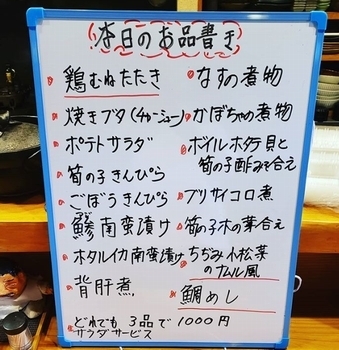 本日のお品書き
鶏むねたたき
焼きブタ(チャーシュー)
ポテトサラダ
筍の子きんぴら
ごぼうきんぴら
鯵南蛮漬け
ホタルイカ南蛮漬け
背肝煮
なすの煮物
かぼちゃの煮物
ボイルホタテ貝と
筍の子酢み合え
ブリサイコロ煮
筍の子木の葉合え
ちぢみ小松菜
のナムル風
鯛めし
どれでも3品で1000円
サラダサービス